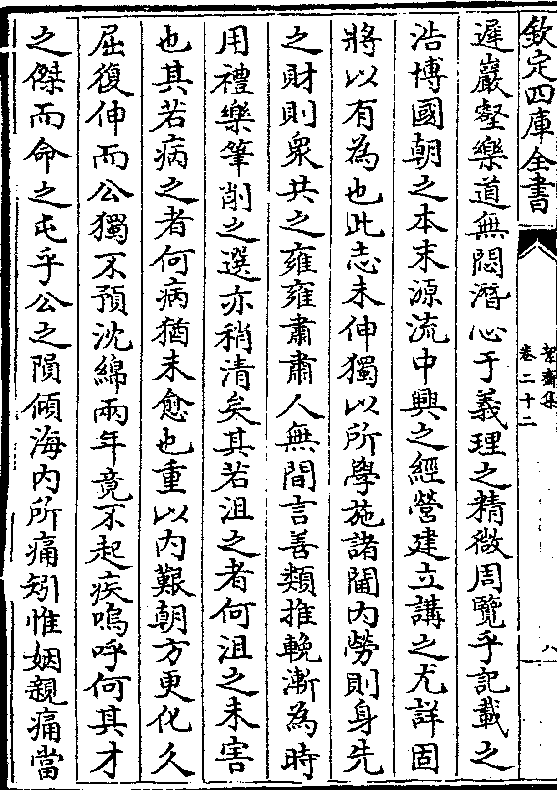 欽定四庫全書
絜齋集
卷二十二
八
遲巖壑樂道無悶潛心于義理之精微周覽乎記載之
浩博國朝之本末源流中興之經營建立講之尤詳固
將以有為也此志未伸獨以所學施諸閫内勞則身先
之財則衆共之雍雍肅肅人無間言善類推輓漸為時
用禮樂筆削之選亦稍清矣其若沮之者何沮之未害
也其若病之者何病猶未愈也重以内艱朝方更化久
屈復伸而公獨不預沈綿兩年竟不起疾嗚呼何其才
之傑而命之屯乎公之隕傾海内所痛矧惟姻親痛當